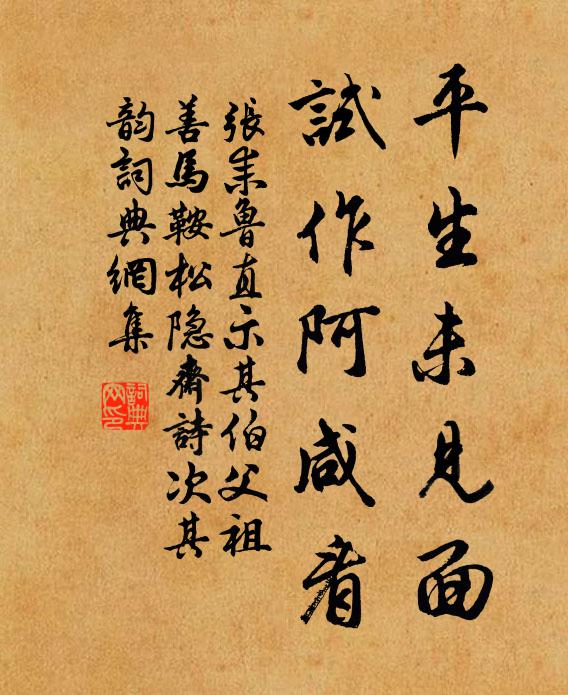 平生未見面
試作阿咸看
張耒魯直示其伯父祖
善馬鞍松隐齋詩次其
韵詞典網集
詞典網印